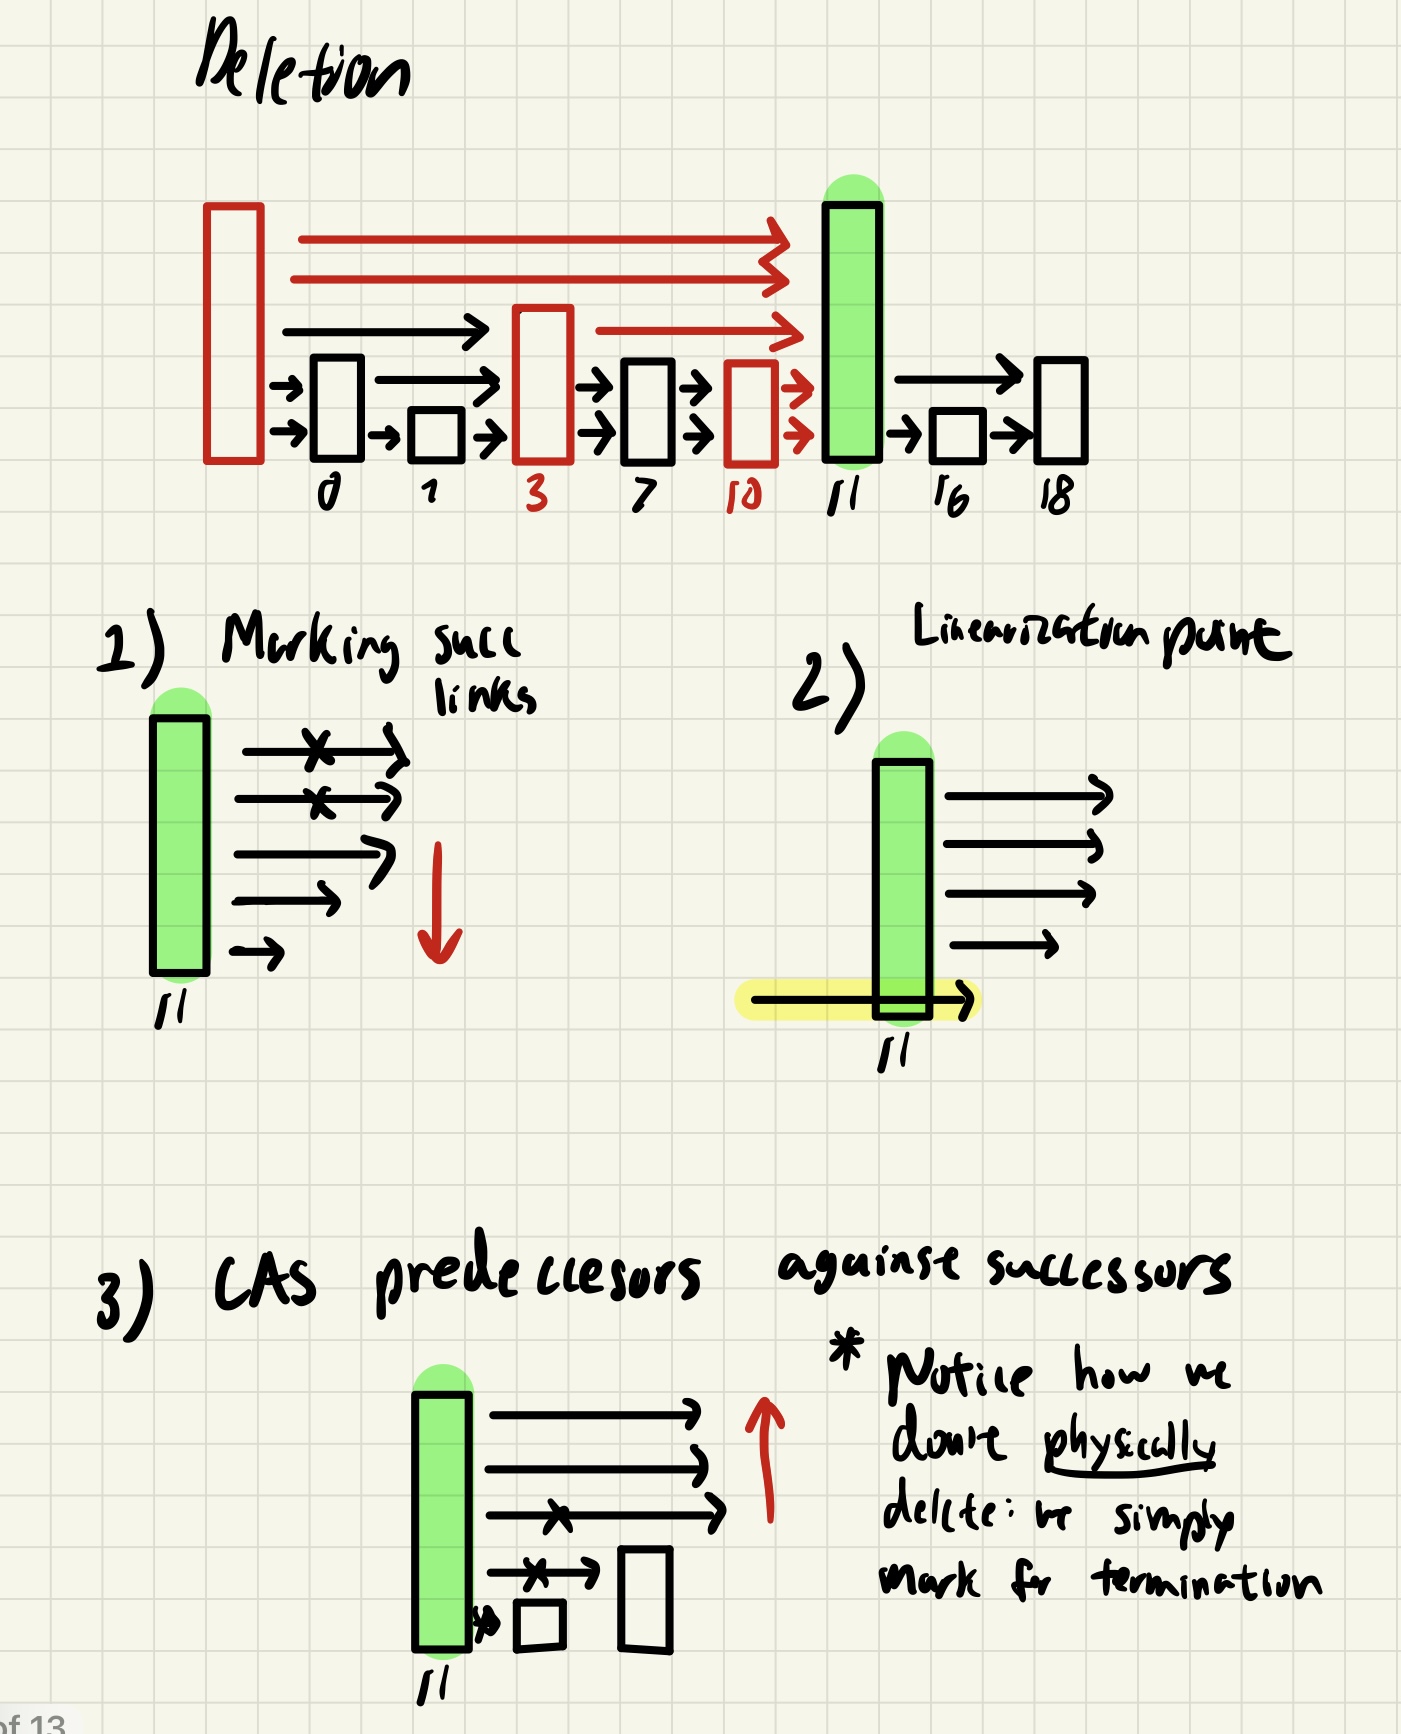 Deletion
0 1 3 7 10 11 16 18
1) Marking succ
links
11
2) Linearization point
11
3) CAS predeccesors against successors
* Notice how we
don't physically
delete: we simply
mark for termination
11
of 13